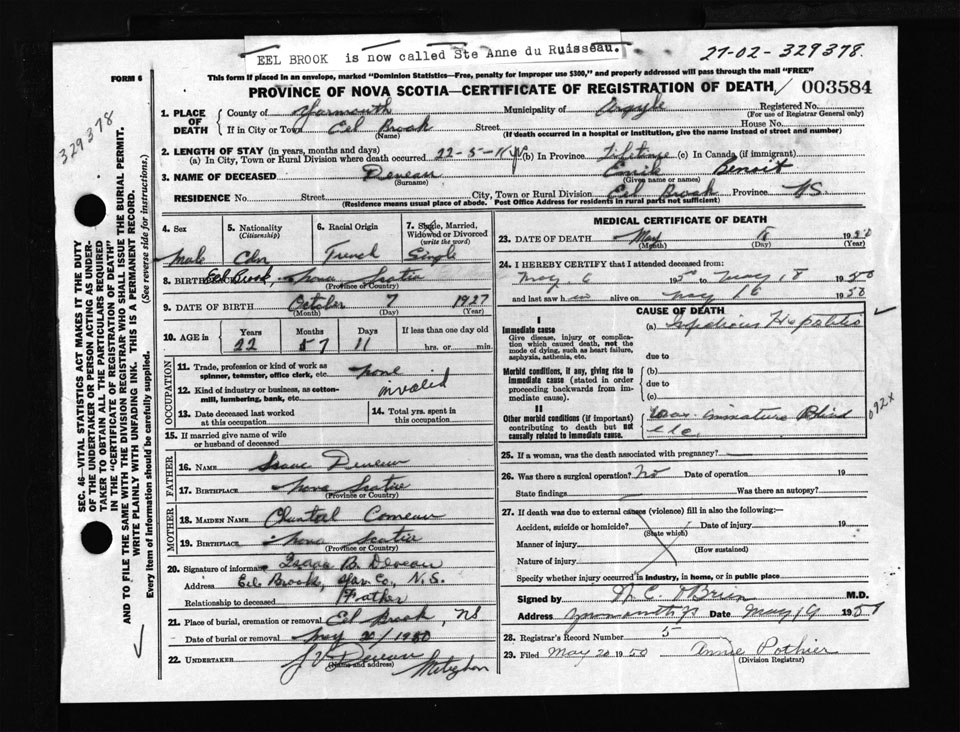 EEL BROOK is now called Ste Anne du Ruisseau.
27-02-329378.
FORM 6
This form if placed in an envelope, marked "Dominion Statistics—Free, penalty for improper use $300," and properly addressed will pass through the mail "FREE"
PROVINCE OF NOVA SCOTIA—CERTIFICATE OF REGISTRATION OF DEATH 003584
329378
SEC. 46—VITAL STATISTICS ACT MAKES IT THE DUTY
OF THE UNDERTAKER OR PERSON ACTING AS UNDER-
TAKER TO OBTAIN ALL THE PARTICULARS REQUIRED
IN THE "CERTIFICATE OF REGISTRATION OF DEATH"
AND TO FILE THE SAME WITH THE DIVISION REGISTRAR WHO SHALL ISSUE THE BURIAL PERMIT.
WRITE PLAINLY WITH UNFADING INK. THIS IS A PERMANENT RECORD.
Every item of information should be carefully supplied. (See reverse side for instructions.)
1. PLACE OF DEATH County of Yarmouth Municipality of Argyle Registered No.
(For use of Registrar General only)
If in City or Town Eel Brook Street House No.
(Name) (If death occurred in a hospital or institution, give the name instead of street and number)
2. LENGTH OF STAY (in years, months and days)
(a) In City, Town or Rural Division where death occurred 22-5-11 (b) In Province Lifetime (c) In Canada (if immigrant)
3. NAME OF DECEASED Deveau Emile Benoit
(Surname) (Given name or names)
RESIDENCE No. Street City, Town or Rural Division Eel Brook Province N.S.
(Residence means usual place of abode. Post Office Address for residents in rural parts not sufficient)
4. Sex
Male
5. Nationality
(Citizenship)
Cdn
6. Racial Origin
French
7. Single, Married, Widowed or Divorced
(write the word)
Single
8. BIRTHPLACE Eel Brook, Nova Scotia
(Province or Country)
9. DATE OF BIRTH October 7 1927
(Month) (Day) (Year)
10. AGE in Years Months Days If less than one day old
22 5 7 11 hrs. or min.
OCCUPATION
11. Trade, profession or kind of work as
spinner, teamster, office clerk, etc. none
12. Kind of industry or business, as cotton-
mill, lumbering, bank, etc. invalid
13. Date deceased last worked
at this occupation
14. Total yrs. spent in
this occupation
15. If married give name of wife
or husband of deceased
FATHER
16. NAME Isaac Deveau
17. BIRTHPLACE Nova Scotia
(Province or Country)
MOTHER
18. MAIDEN NAME Comeau
19. BIRTHPLACE Nova Scotia
(Province or Country)
20. Signature of informant Isaac B. Deveau
Address Eel Brook, Yar. Co., N.S.
Relationship to deceased Father
21. Place of burial, cremation or removal Eel Brook, NS
Date of burial or removal May 20/1950
22. UNDERTAKER J V Deveau Meteghan
(Name and address)
MEDICAL CERTIFICATE OF DEATH
23. DATE OF DEATH May 18 1950
(Month) (Day) (Year)
24. I HEREBY CERTIFY that I attended deceased from:
May 6 1950 to May 18 1950
and last saw him alive on May 16 1950
CAUSE OF DEATH
I
Immediate cause
Give disease, injury or complica-
tion which caused death, not the
mode of dying, such as heart failure,
asphyxia, asthenia, etc.
(a) Infectious Hepatitis
due to
Morbid conditions, if any, giving rise to
immediate cause (stated in order
proceeding backwards from im-
mediate cause).
(b)
due to
(c)
II
Other morbid conditions (if important)
contributing to death but not
causally related to immediate cause.
Was immature Blind
etc.
092x
25. If a woman, was the death associated with pregnancy?
26. Was there a surgical operation? No Date of operation 19
State findings Was there an autopsy?
27. If death was due to external causes (violence) fill in also the following:—
Accident, suicide or homicide? Date of injury 19
(State which)
Manner of injury
(How sustained)
Nature of injury
Specify whether injury occurred in industry, in home, or in public place
Signed by O'Brien M.D.
Address Yarmouth Date May 19 1950
28. Registrar's Record Number 5
29. Filed May 20 1950 Annie Pothier
(Division Registrar)